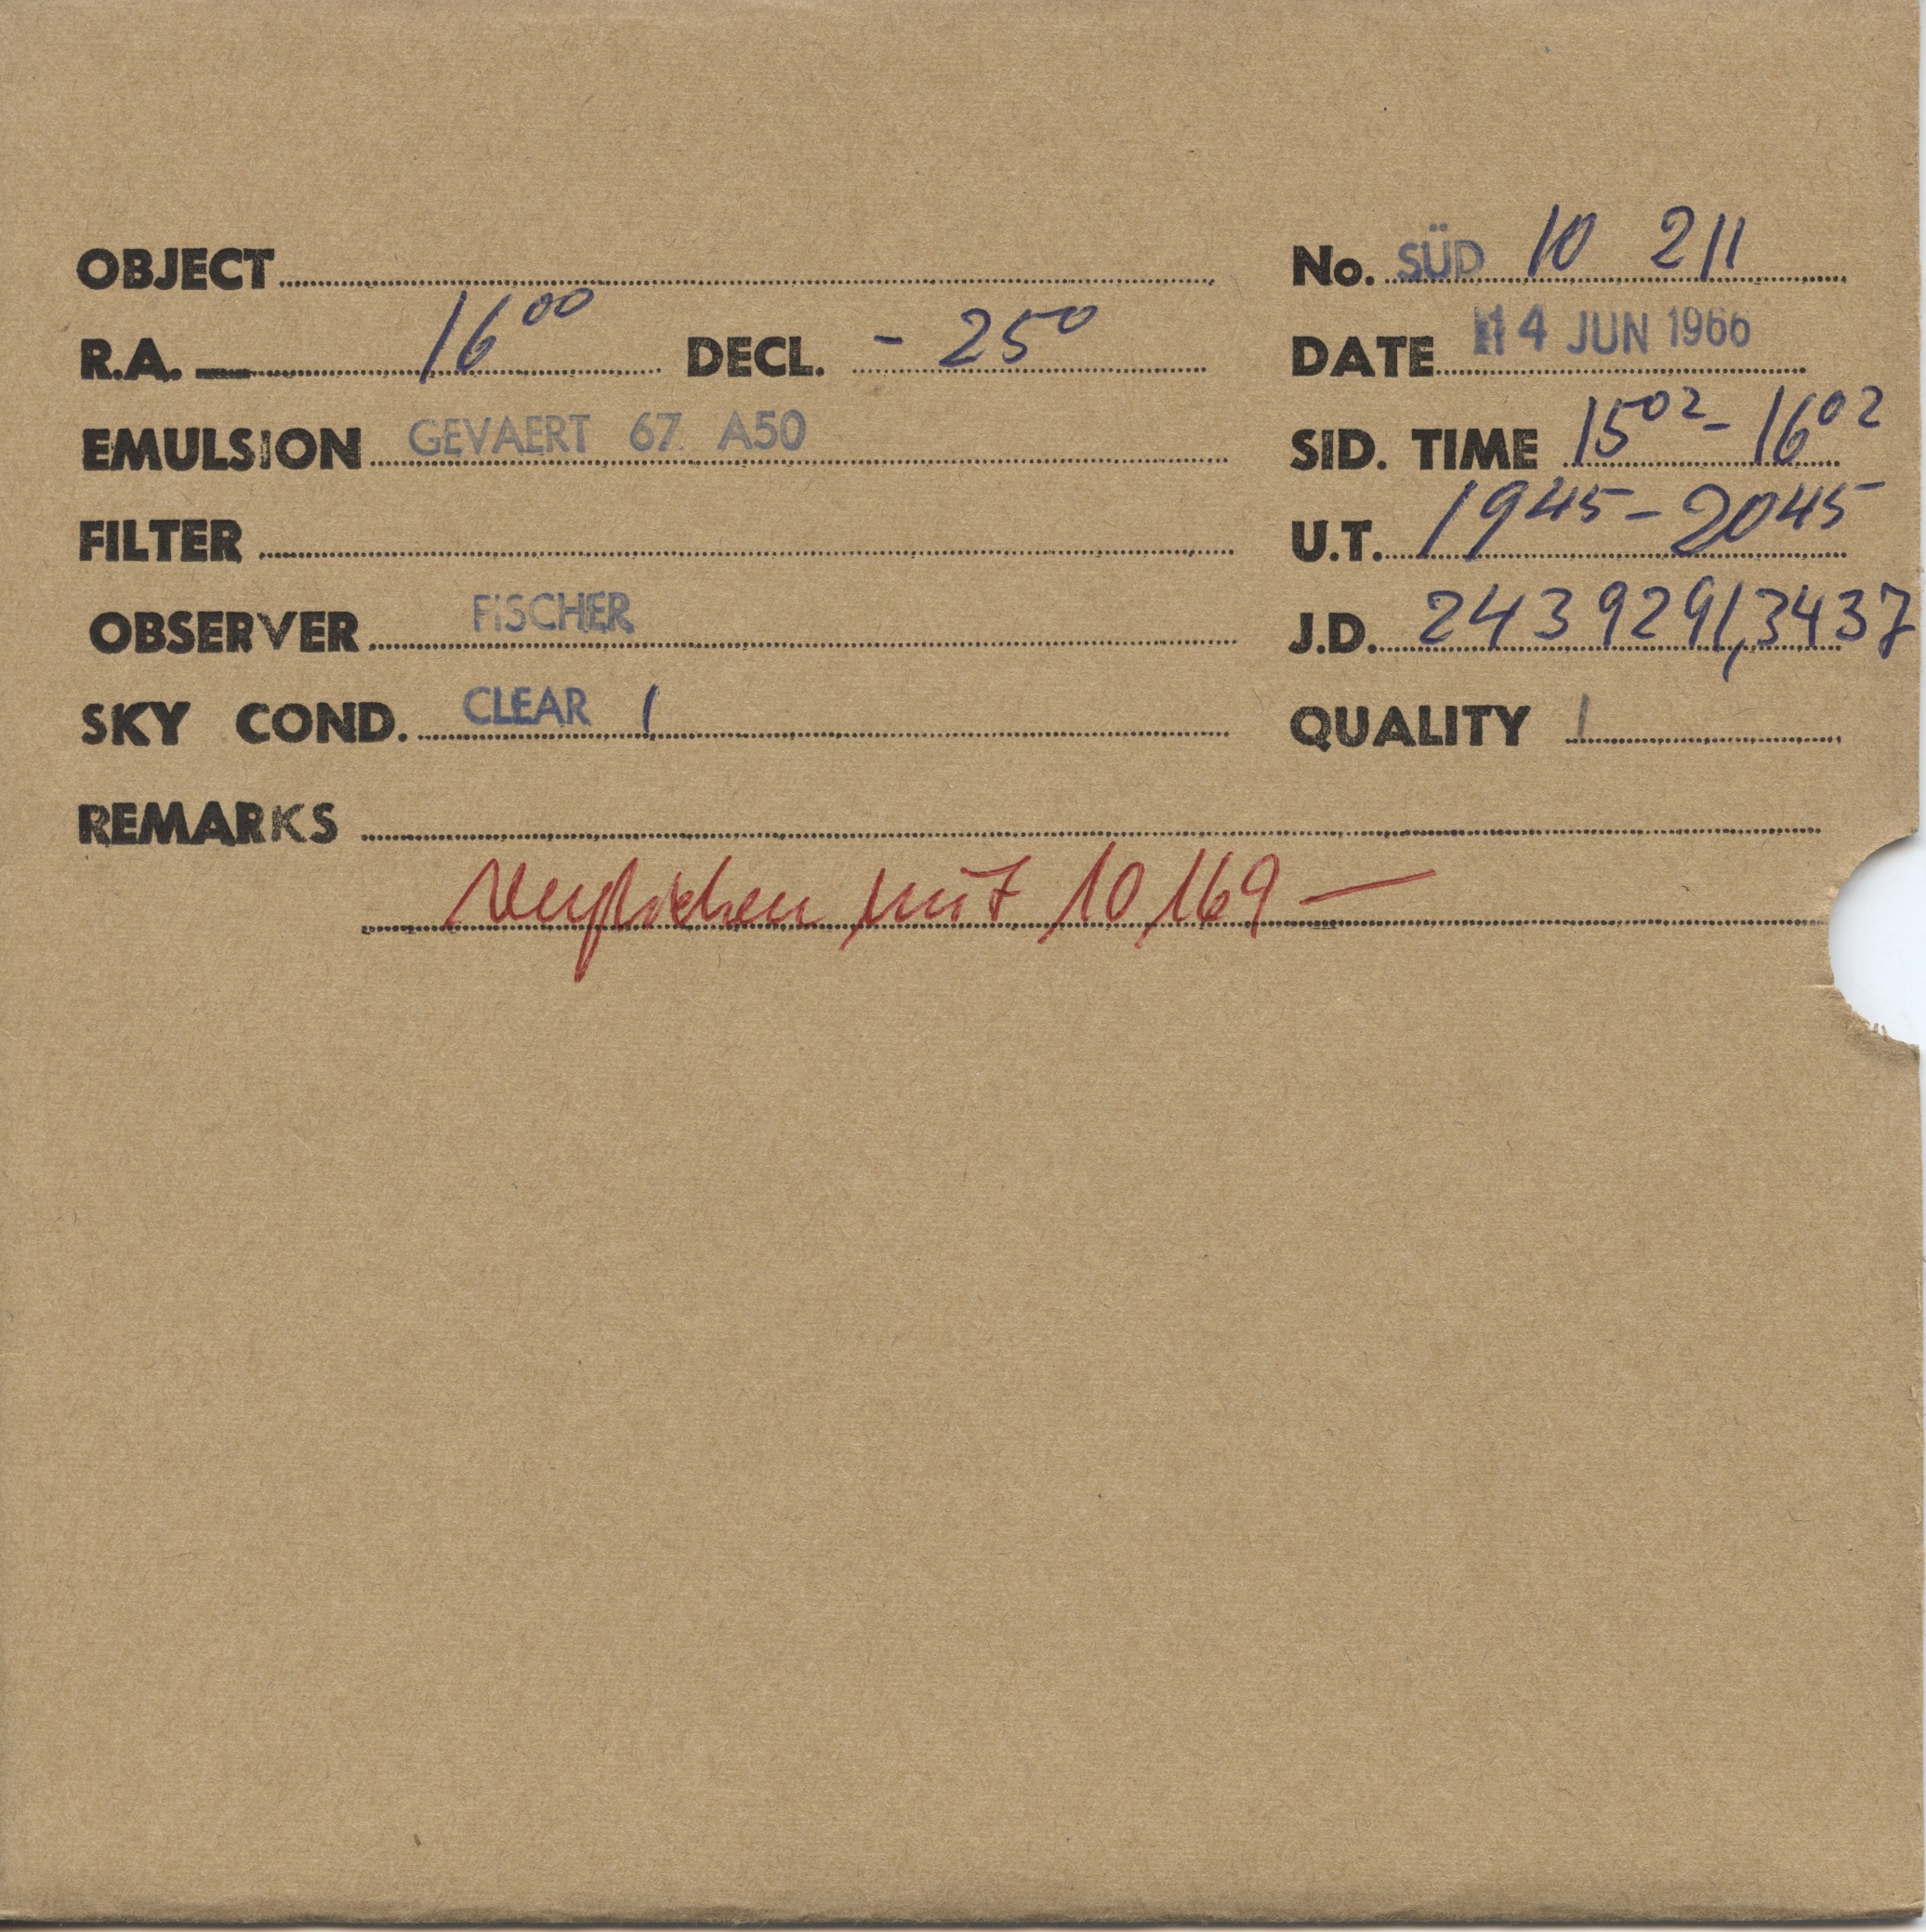 OBJECT No. SÜD 10 211
R.A. 16⁰⁰ DECL. - 25⁰ DATE 14 JUN 1966
EMULSION GEVAERT 67 A50 SID. TIME 15⁰² - 16⁰²
FILTER U.T. 19⁴⁵ - 20⁴⁵
OBSERVER FiSCHER J.D. 243 9291,3437
SKY COND. CLEAR 1 QUALITY 1
REMARKS
verglichen mit 10 169 —